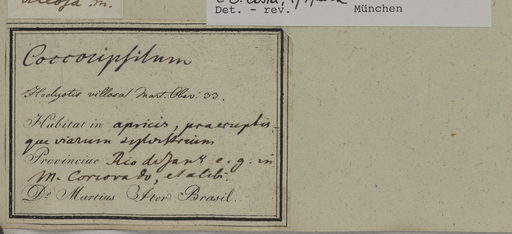 villosa. m.
Det. - rev. München
Coccocipsilum
Hedyotis villosa Mart. Obs. 33.
Habitat in apricis, praeruptis
que viarum sylvestrium
Provinciae Rio de Jan. e. g. in
M. Corcovado, et alibi.
Dr. Martius Iter Brasil.